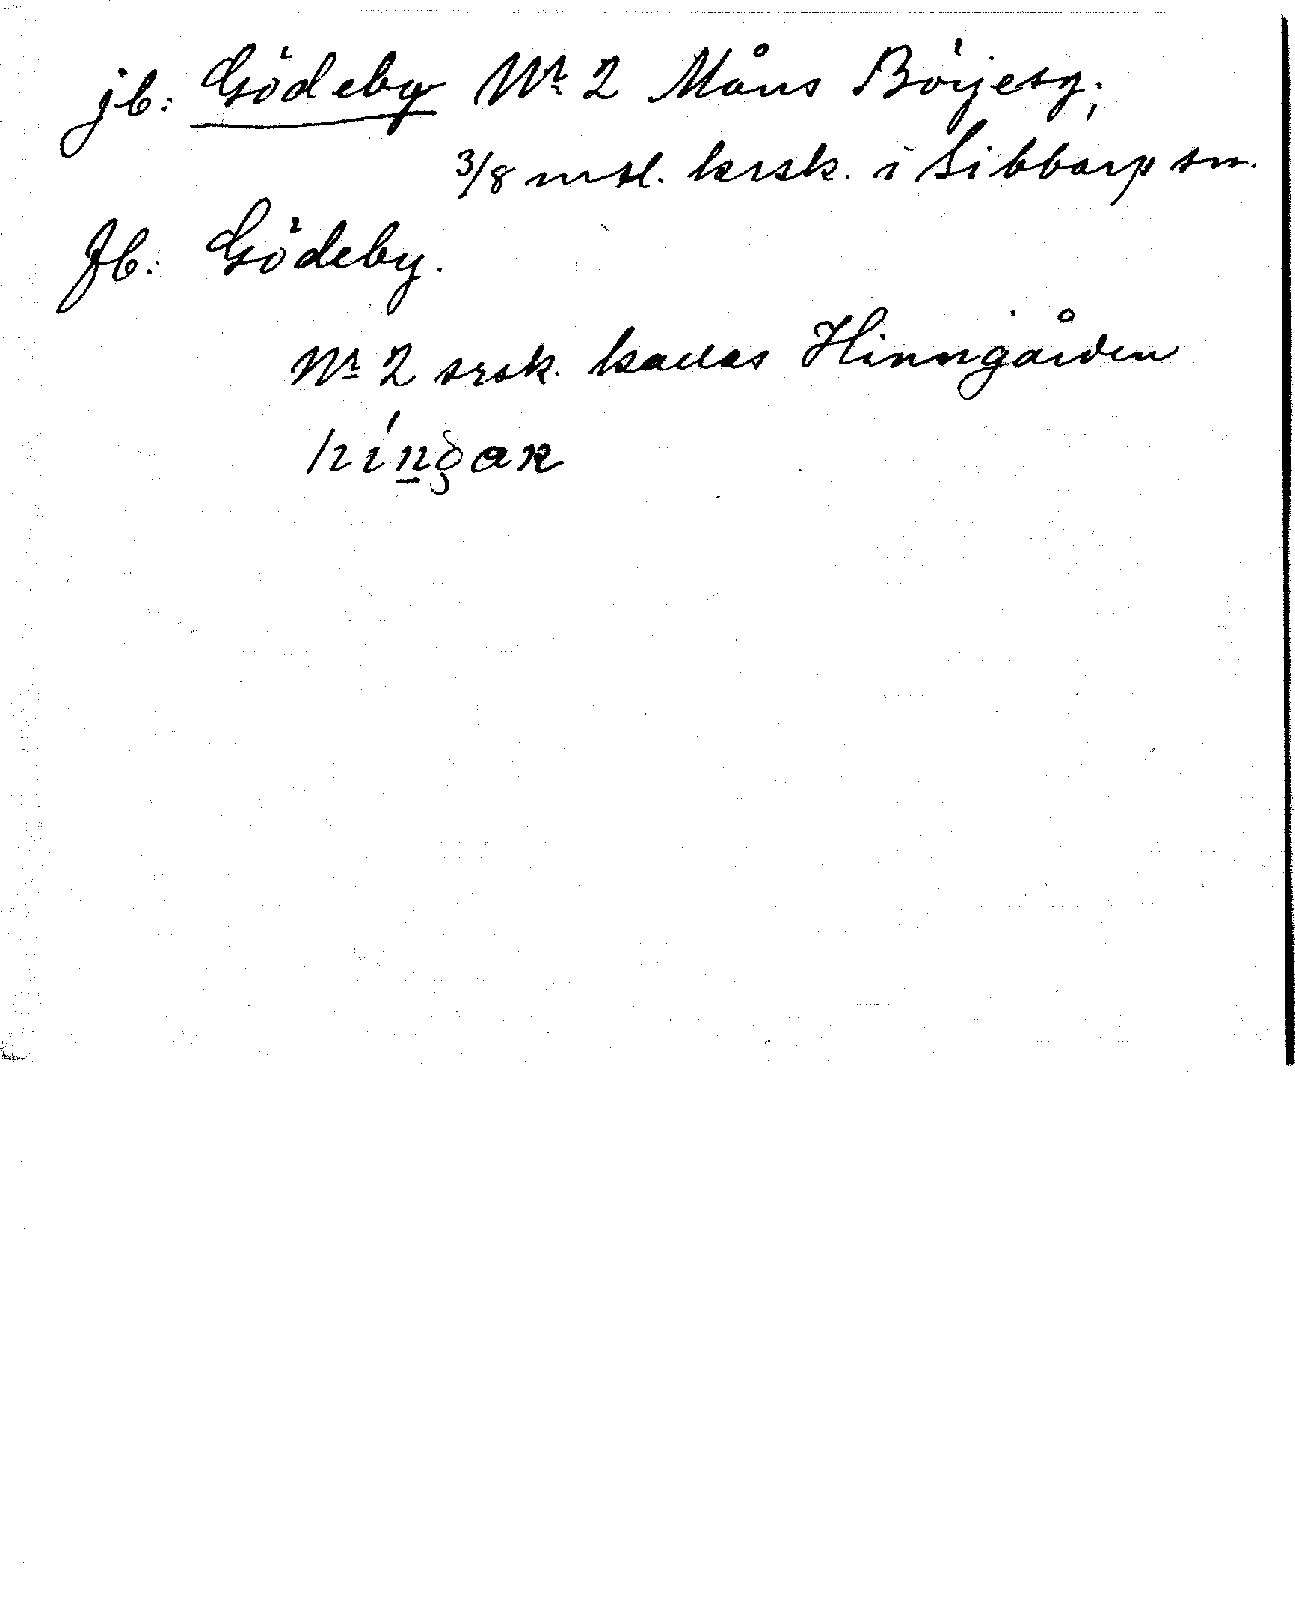 jb: Gödeby Nr 2 Måns Börjesg;
3/8 mtl. krsk. i Sibbarp sn.
Jb: Gödeby.
Nr 2 srsk. kallas Hinngården